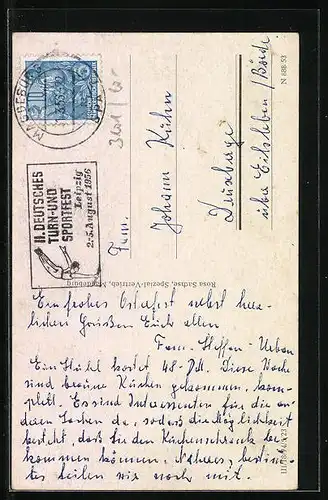 MAGDEBURG
10
II. DEUTSCHES
TURN-UND
SPORTFEST
Leipzig
2.-5. August 1956
N 888 53
Fam.
Johann Kühn
über Eilsleben /
Rosa Sachse, Spezial-Vertrieb, Magdeburg
Ein frohes Osterfest nebst herz-
lichen Grüßen Euch allen
Fam. Steffen - Urban
Ein Stuhl kostet 48.- DM. Diese Woche
sind braune Küchen gekommen, kom-
plett. Es sind Interessenten für die an-
deren Sachen da, sodaß die Möglichkeit
besteht, daß Sie den Küchenschrank be-
kommen können. Näheres, bestimm-
tes teilen wir noch mit.